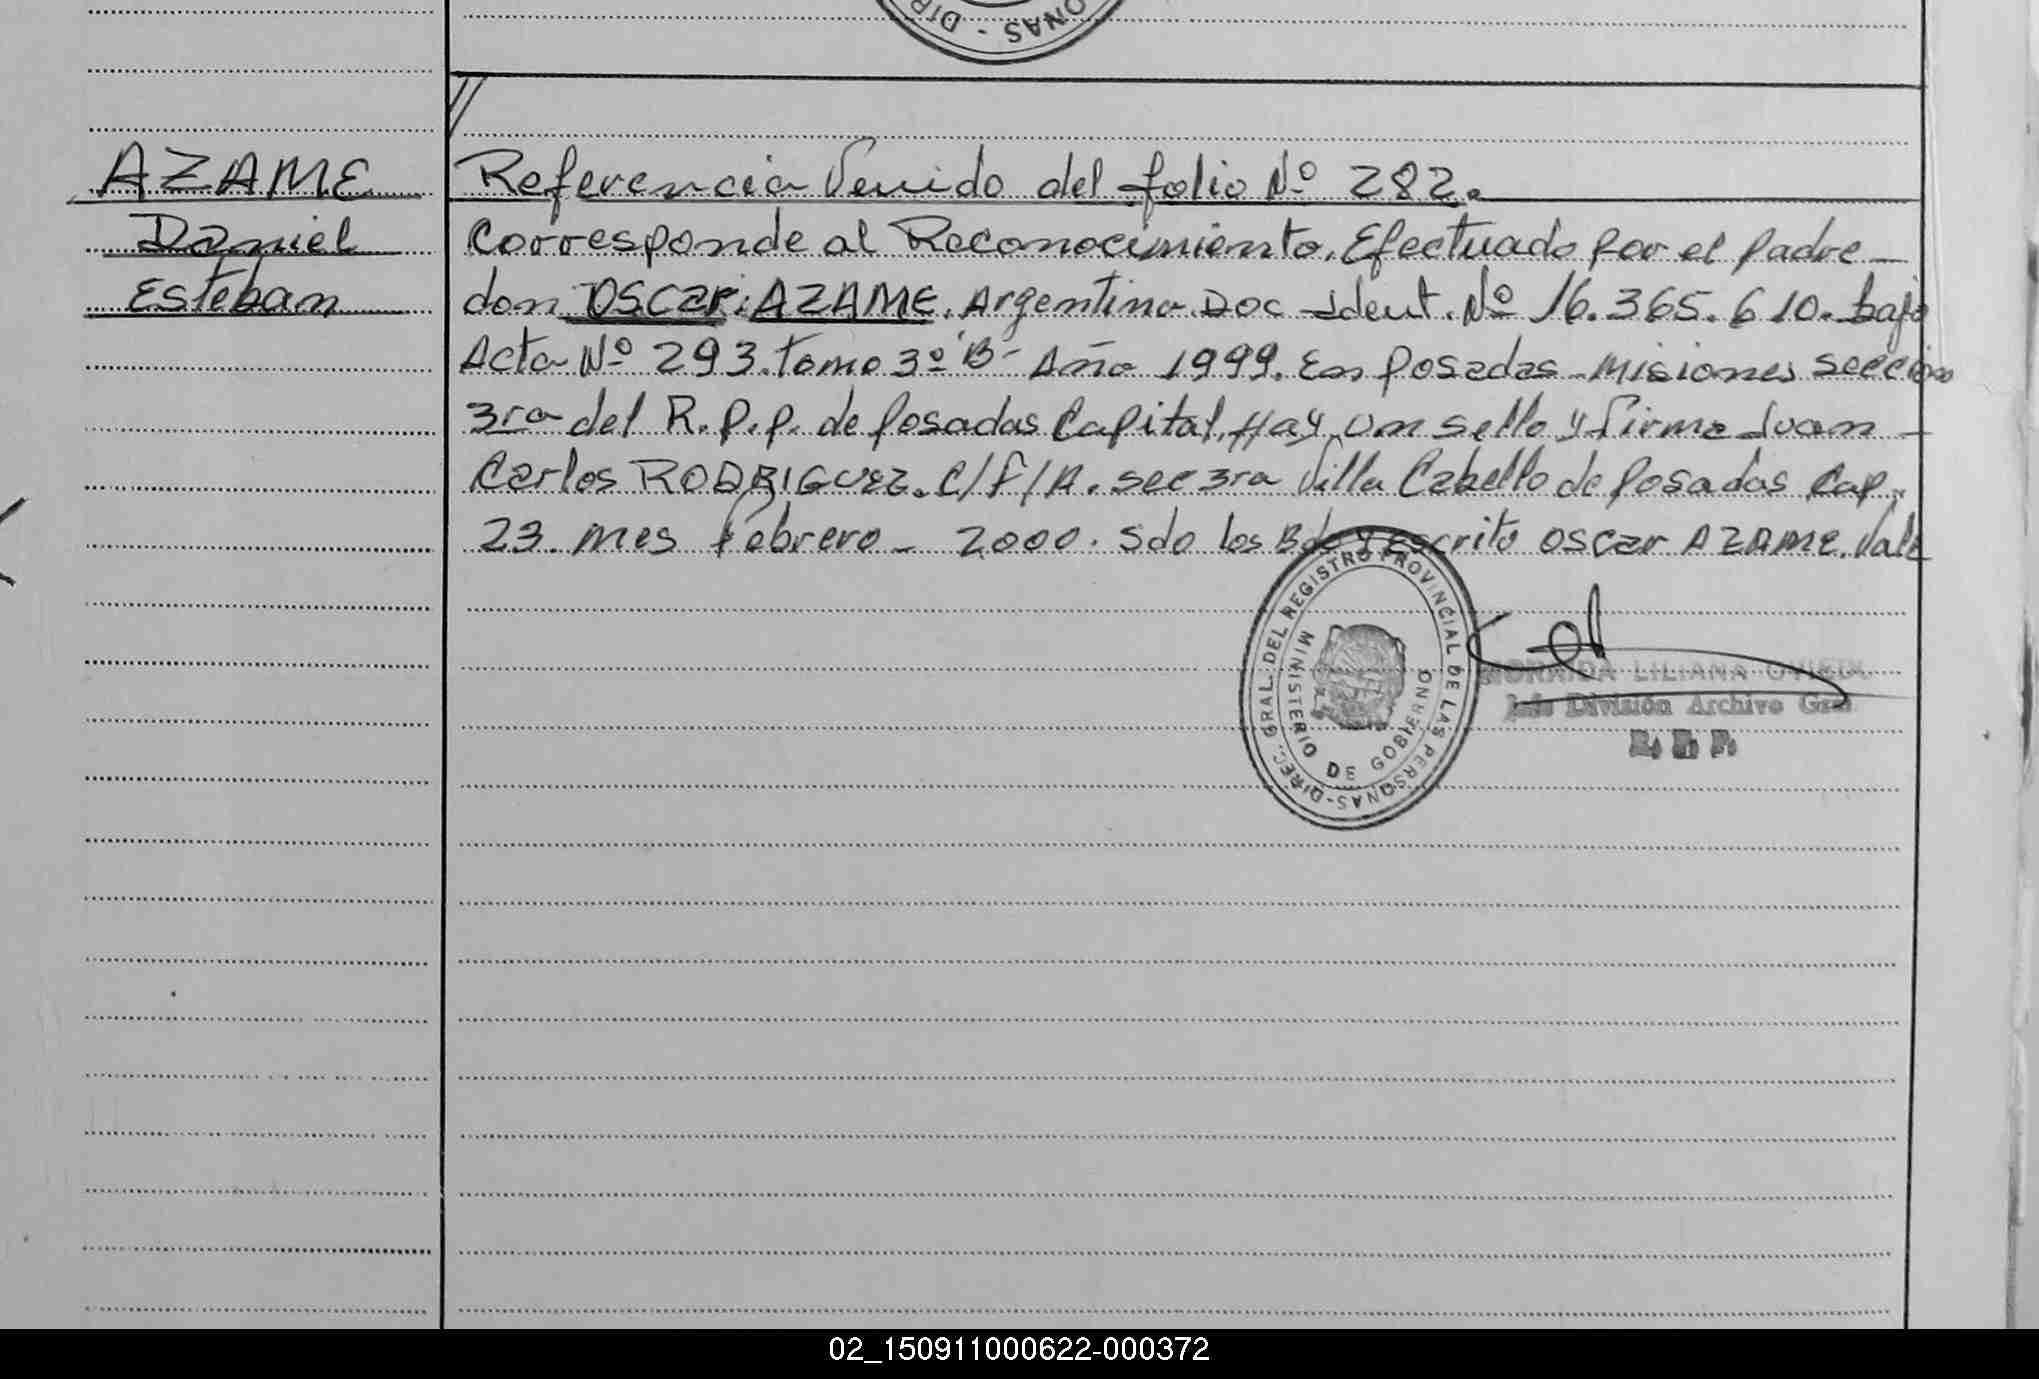 ONAS - DIR
//
AZAME
Daniel
Esteban
Referencia Venido del folio Nº 282.
Corresponde al Reconocimiento. Efectuado por el padre
don OSCar. AZAME. Argentino. Doc Ident. Nº 16.365.610. bajo
Acta Nº 293. tomo 3º "B" Año 1999. En Posadas Misiones Sección
3ra del R.P.P. de Posadas Capital. Hay un sello y firma Juan
Carlos RODRIGUEZ. C/F/A. sec 3ra Villa Cabello de Posadas Cap.
23 mes Febrero - 2000. Sdo los Bde y Escrito Oscar AZAME. Vale
DIREC. GRAL. DEL REGISTRO PROVINCIAL DE LAS PERSONAS
MINISTERIO DE GOBIERNO
LILIANA
Jefe División Archivo Gral.
R. P. P.
02_150911000622-000372